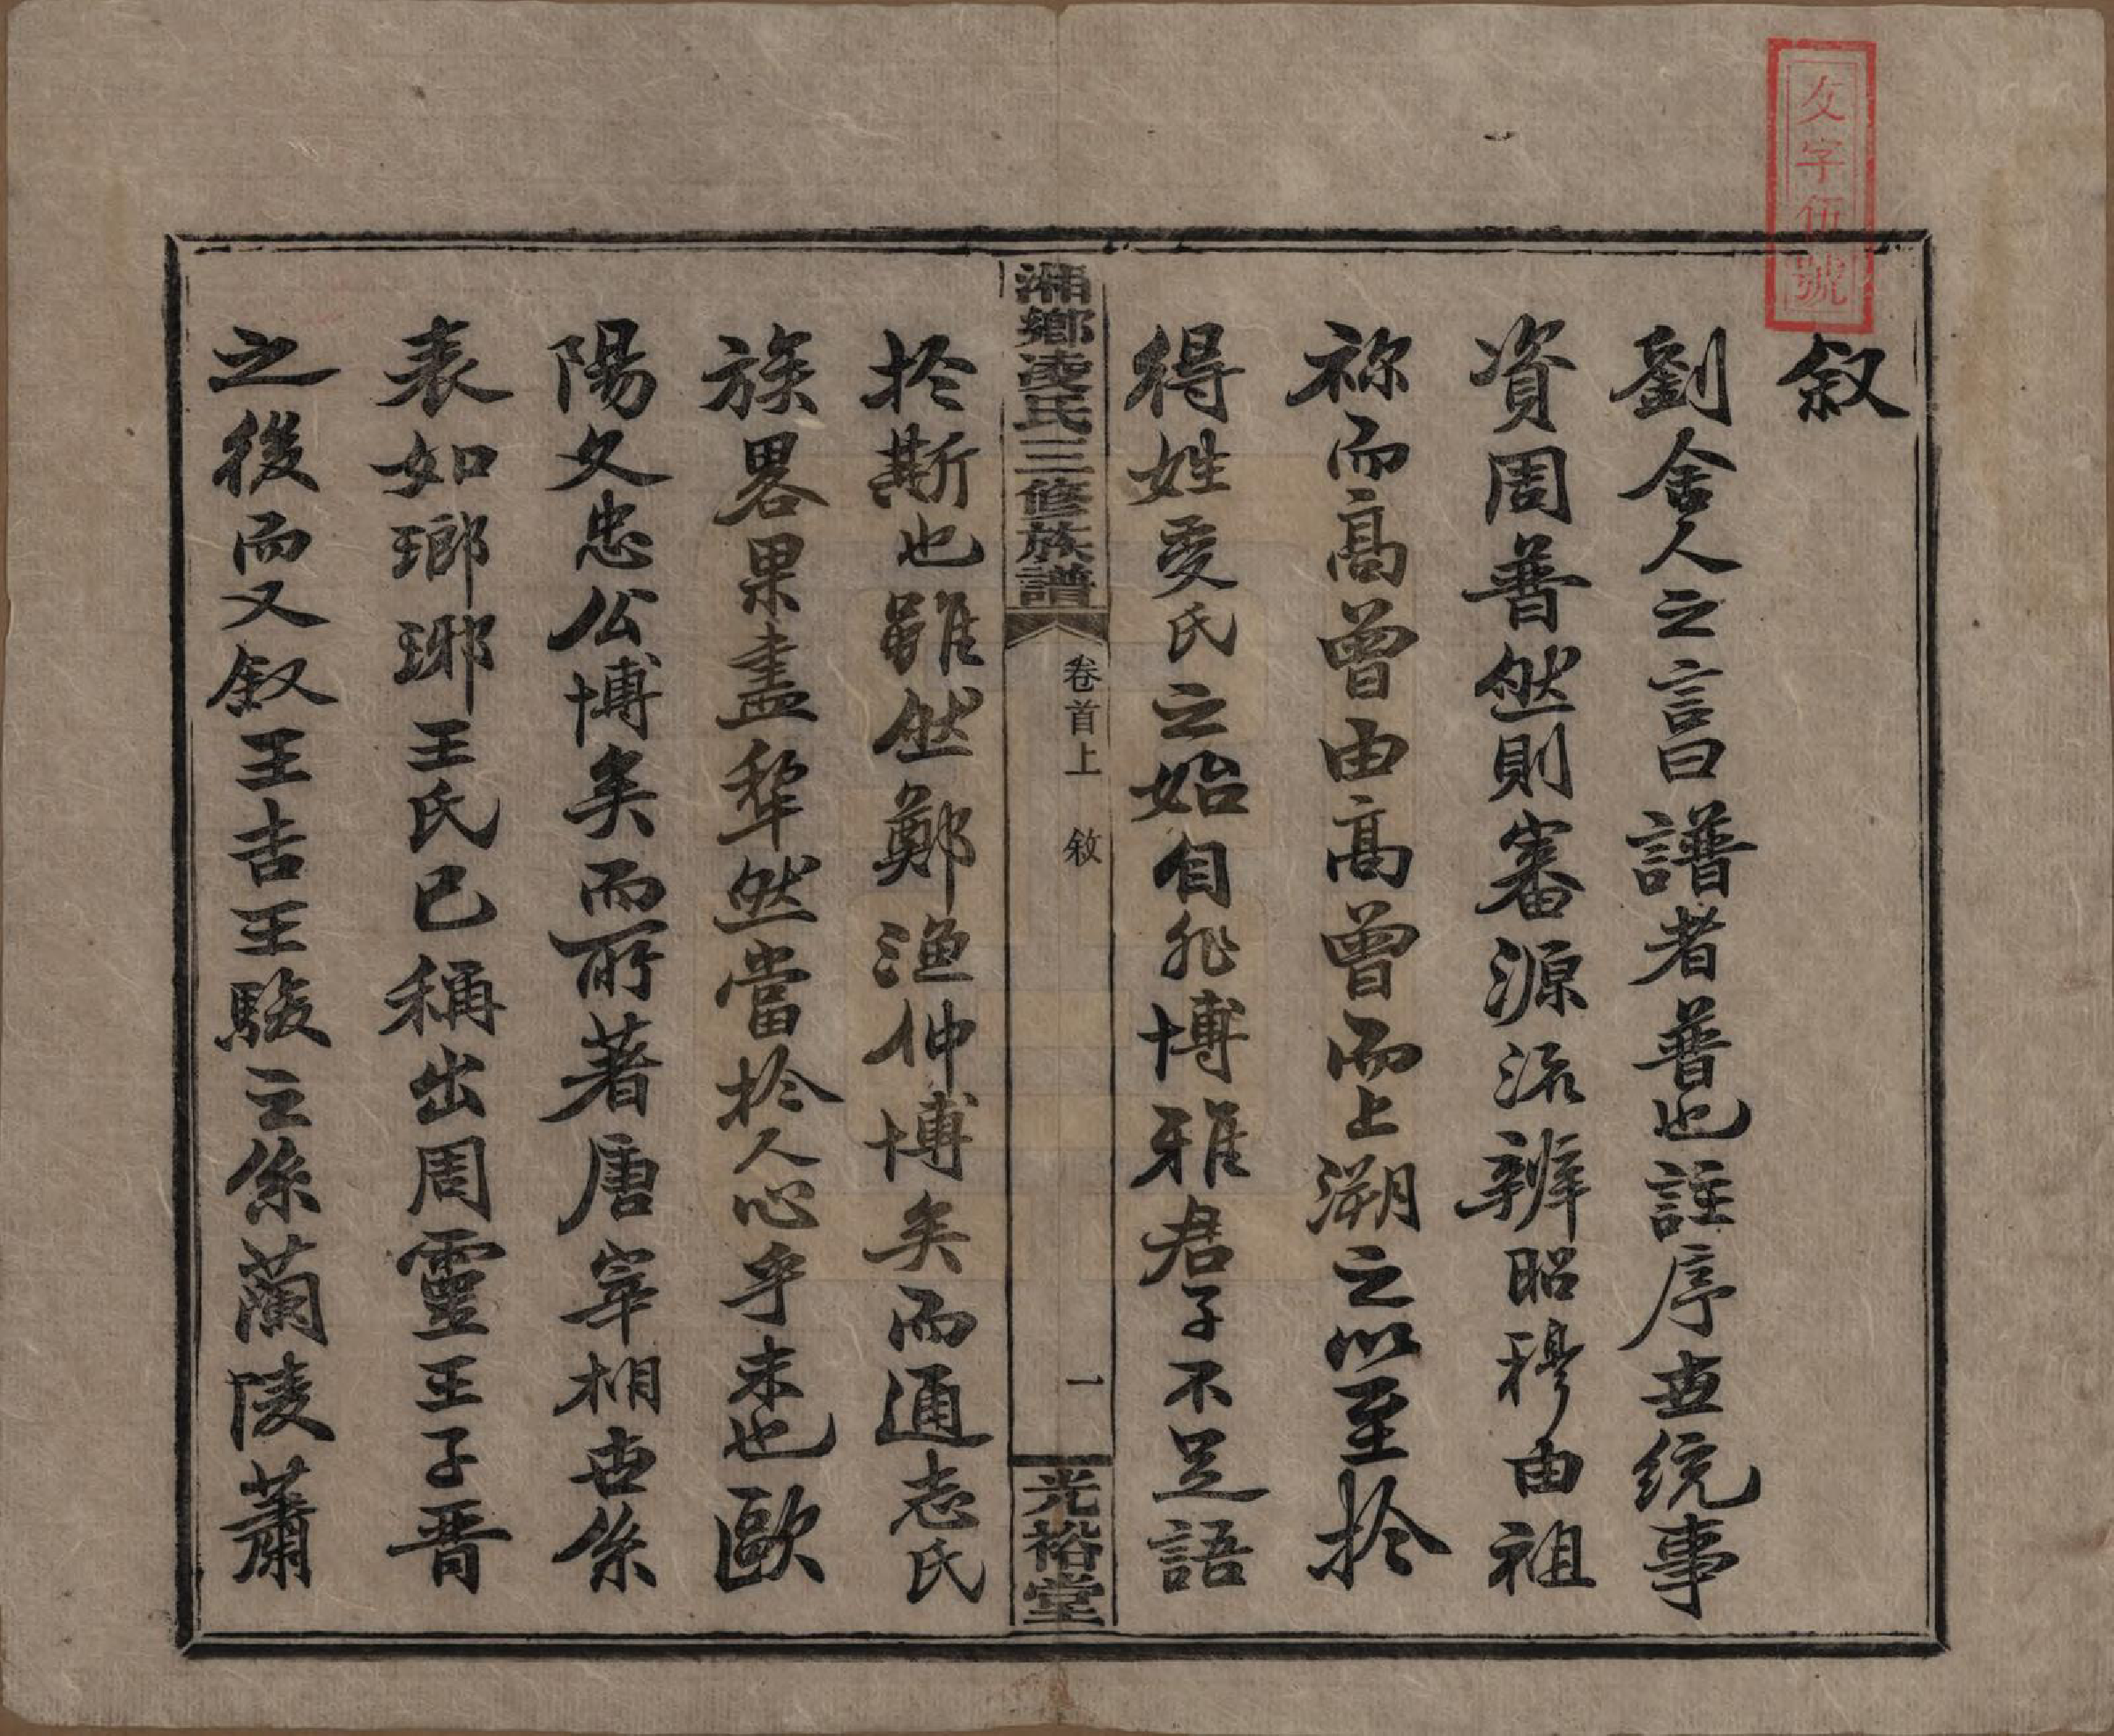 文字伍號
叙
劉舍人之言曰譜者普也註序世統事
資周普然則審源流辨昭穆由祖
祢而高曾由高曾而上溯之以至於
得姓受氏之始自非博雅君子不足語
湘鄉凌氏三修族譜
卷首上 敘
一
光裕堂
於斯也雖然鄭漁仲博矣而通志氏
族畧果盡犂然當於人心乎未也歐
陽文忠公博矣而所著唐宰相世系
表如瑯琊王氏已稱出周靈王子晋
之後而又叙王吉王駿之系蘭陵蕭